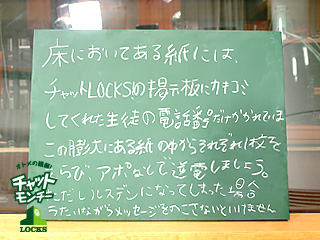 床においてある紙には、
チャットLOCKS!の掲示板にカキコミ
してくれた生徒の電話番号だけがかかれている
この膨大にある紙の中からそれぞれ1枚を
えらび、アポなしで逆電しましょう。
ただしルスデンになってしまった場合
うたいながらメッセージをのこさないといけません
オトメの教室!
チャット
モンチー
LOCKS